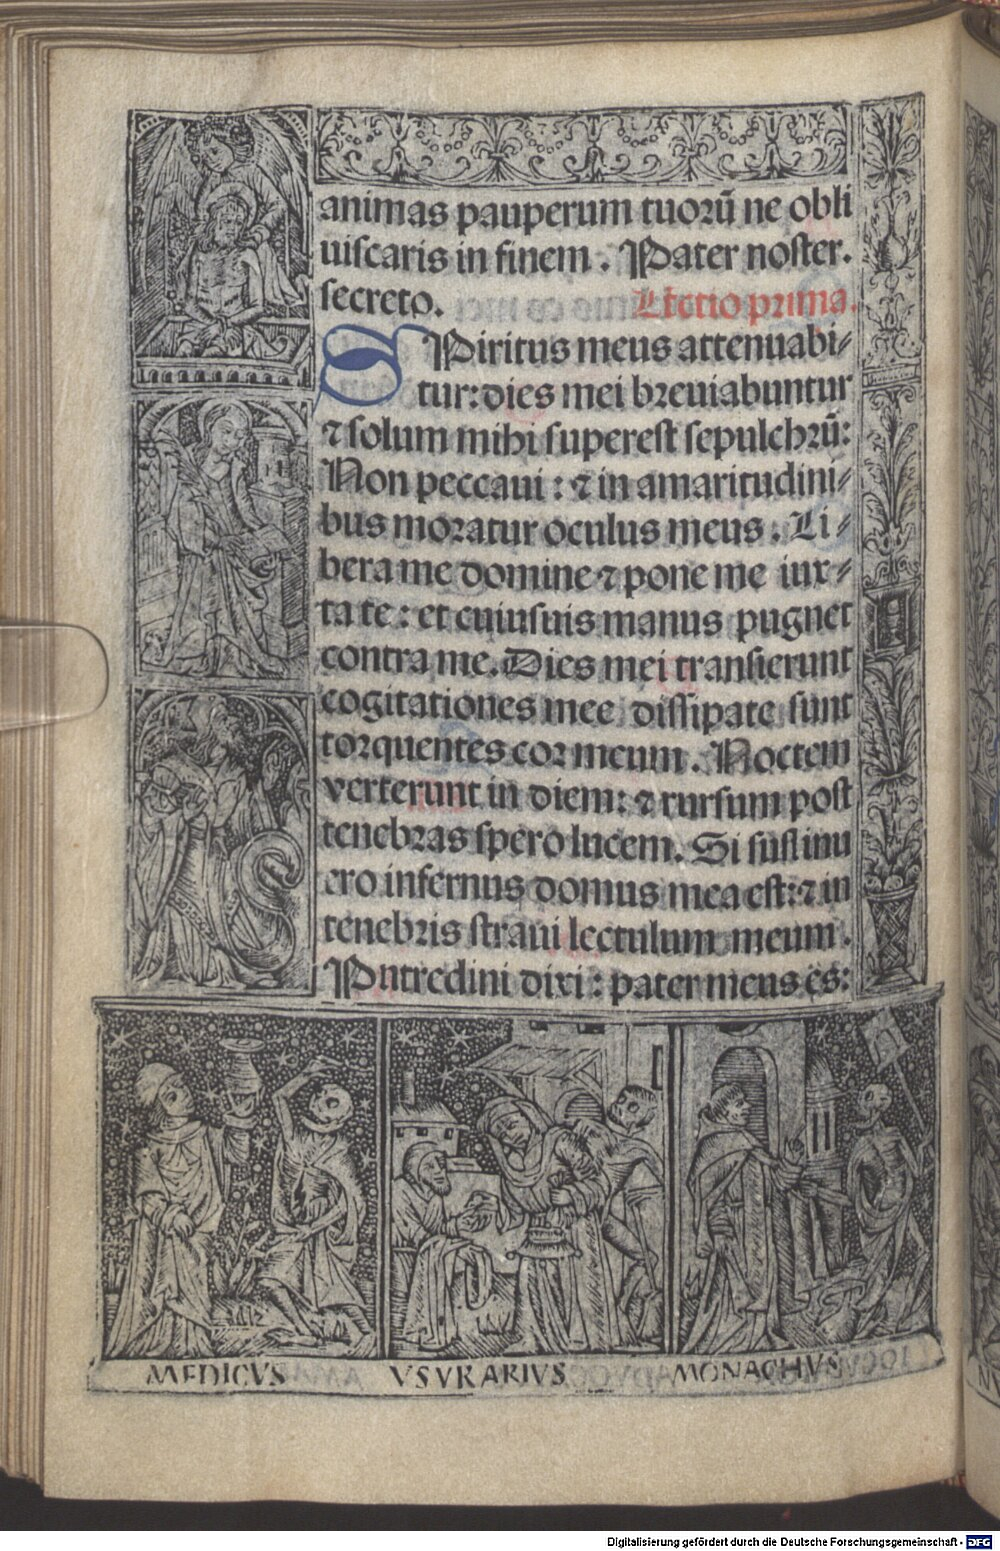 animas pauperum tuoꝛū ne obli
uiſcaris in finem. Pater noſter.
ſecreto. Lectio prima.
SPiritus meus attenuabi⸗
tur: dies mei bꝛeuiabuntur
⁊ ſolum mihi ſupereſt ſepulchꝛū:
Non peccaui: ⁊ in amaritudini⸗
bus moꝛatur oculus meus. Li⸗
bera me domine ⁊ pone me iux⸗
ta te: et cuiuſuis manus pugnet
contra me. Dies mei tranſierunt
cogitationes mee diſſipate ſunt
toꝛquentes coꝛ meum. Noctem
verterunt in diem: ⁊ rurſum poſt
tenebꝛas ſpero lucem. Si ſuſtinu
ero infernus domus mea eſt: ⁊ in
tenebꝛis ſtraui lectulum meum.
Putredini dixi: pater meus es:
MEDICVS VSVRARIVS MONACHVS
Digitalisierung gefördert durch die Deutsche Forschungsgemeinschaft - DFG